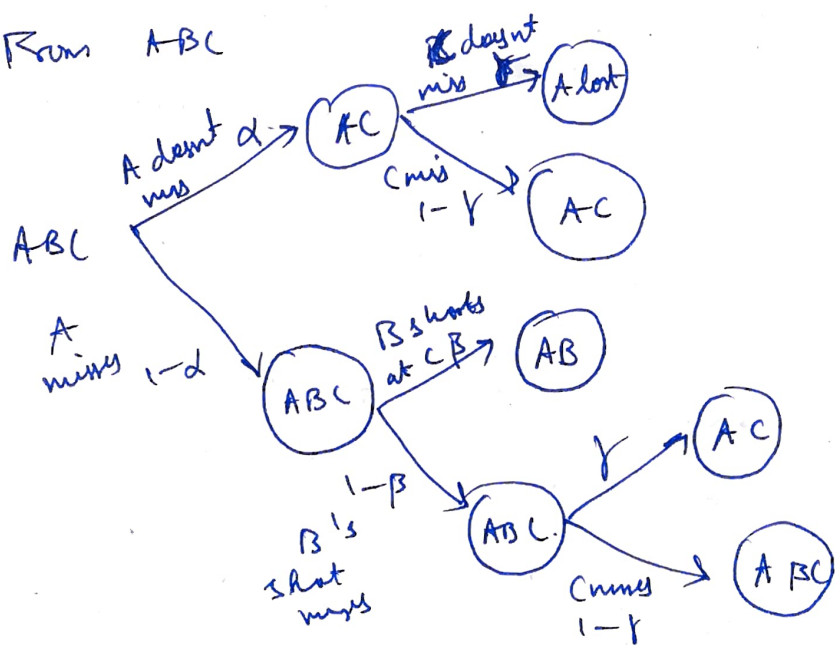 From ABC
A doesn't
miss
α
AC
C doesn't
miss γ
A lost
C mis
1-γ
AC
ABC
A
misses
1-α
ABC
B shoots
at C β
AB
1-β
B's
shot
misses
ABC.
γ
AC
C misses
1-γ
ABC